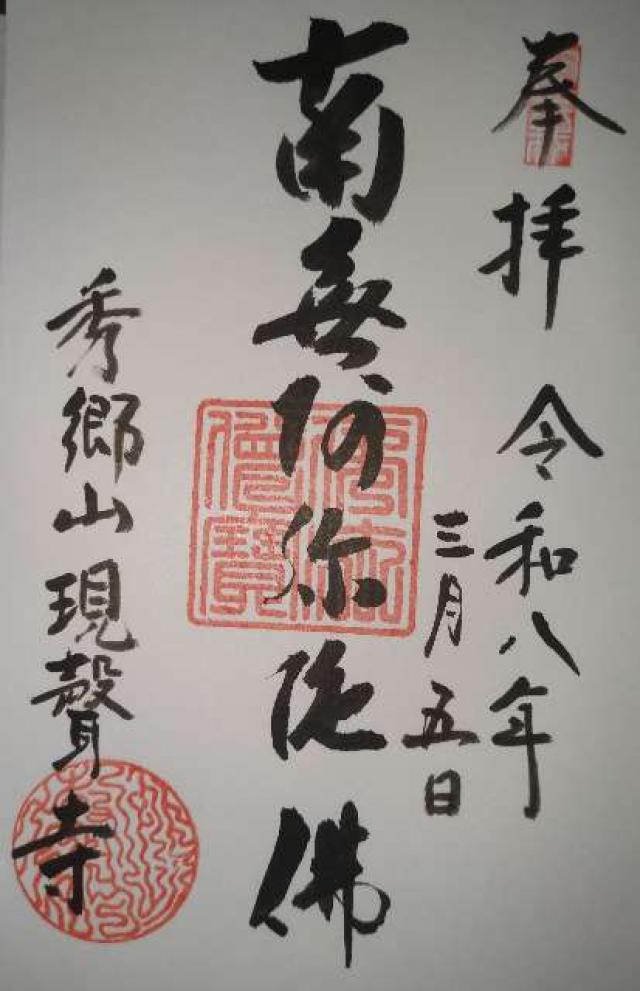 奉拝 令和八年
三月五日
南無阿弥陀佛
秀郷山現聲寺